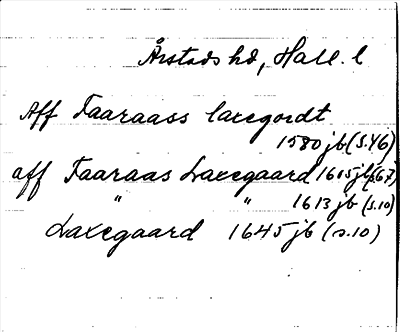 Årstads hd, Hall. l
Aff Faaraass laxegordt
1580 jb (s. 46)
aff Faaraas Laxegaard 1615 jb (s. 67)
" " 1613 jb (s. 10)
Laxegaard 1645 jb (s. 10)